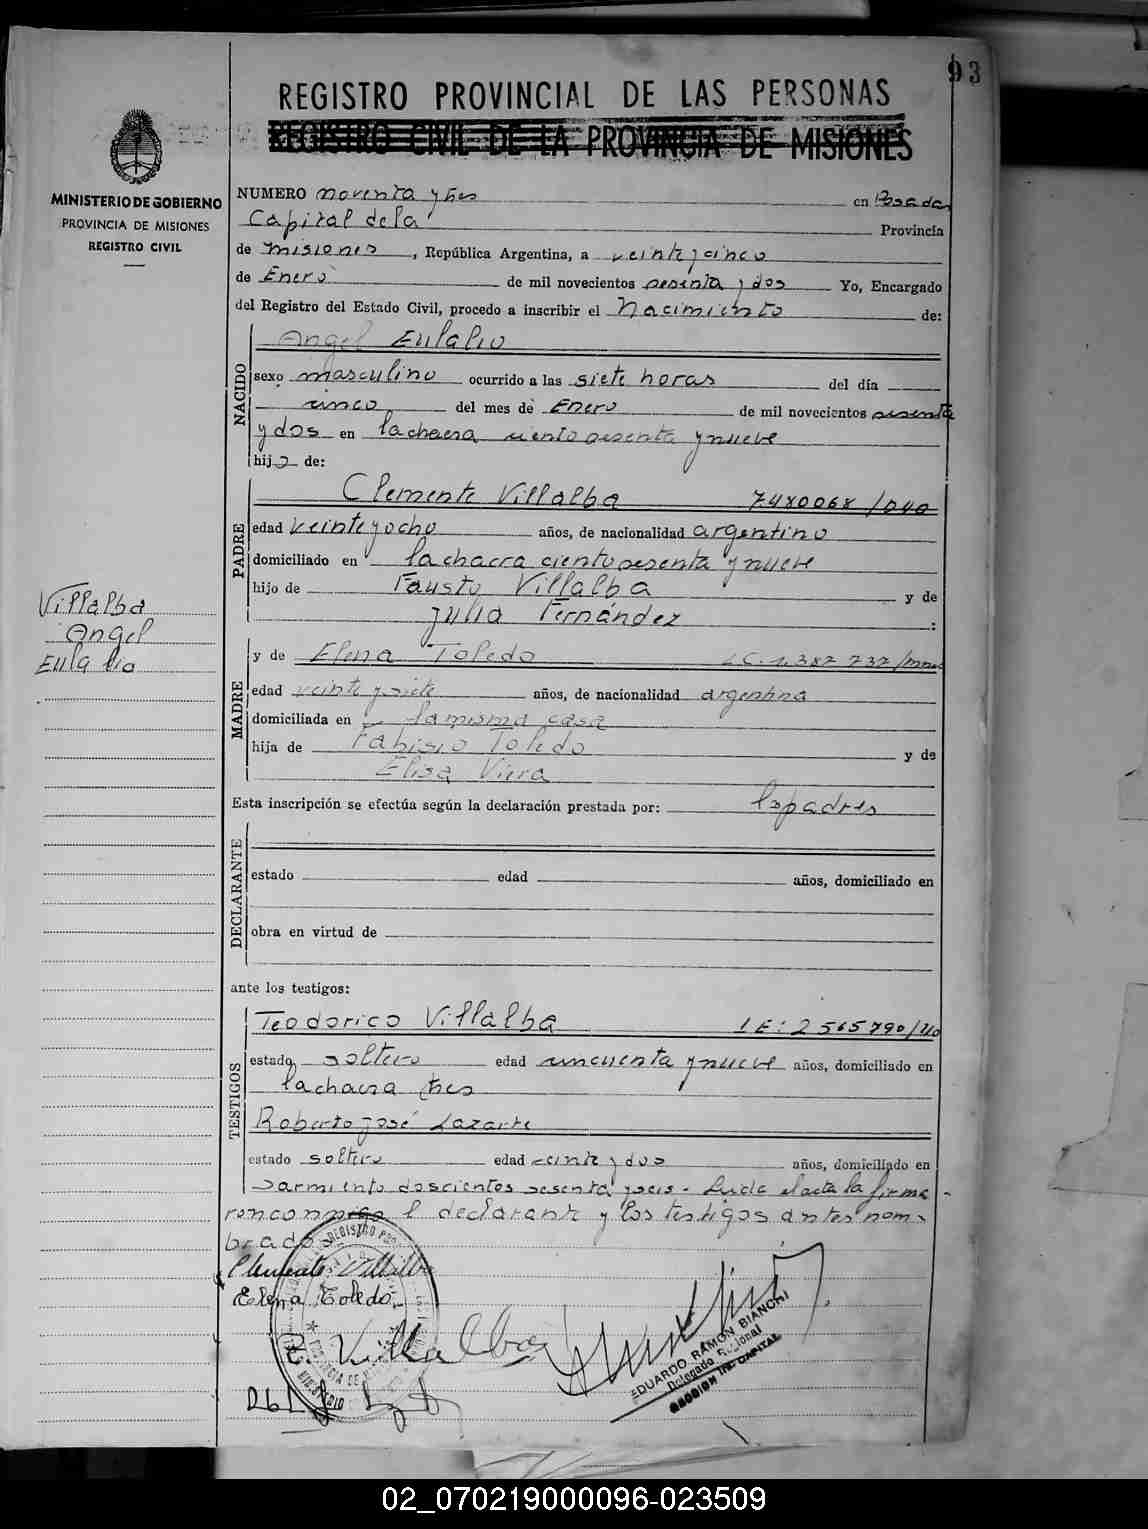 93
REGISTRO PROVINCIAL DE LAS PERSONAS
REGISTRO CIVIL DE LA PROVINCIA DE MISIONES
MINISTERIO DE GOBIERNO
PROVINCIA DE MISIONES
REGISTRO CIVIL
NUMERO noventa y tres en Posadas
Capital de la Provincia
de Misiones, República Argentina, a veinte y cinco
de Enero de mil novecientos sesenta y dos Yo, Encargado
del Registro del Estado Civil, procedo a inscribir el Nacimiento de:
NACIDO
Angel Eulalio
sexo masculino ocurrido a las siete horas del día
cinco del mes de Enero de mil novecientos sesenta
y dos en la chacra ciento sesenta y nueve
hijo de:
PADRE
Clemente Villalba 7480068/
edad veinte y ocho años, de nacionalidad argentino
domiciliado en la chacra ciento sesenta y nueve
hijo de Fausto Villalba y de
Julia Fernández :
Villalba
Angel
Eulalio
MADRE
y de Elena Toledo LC. 1.387 737/
edad veinte y siete años, de nacionalidad argentina
domiciliada en la misma casa
hija de Toledo y de
Elisa Viera
Esta inscripción se efectúa según la declaración prestada por: los padres
DECLARANTE
estado edad años, domiciliado en
obra en virtud de
ante los testigos:
TESTIGOS
Teodorico Villalba LE: 2565790/
estado soltero edad cincuenta y nueve años, domiciliado en
la chacra tres
Roberto José Lazarte
estado soltero edad veinte y dos años, domiciliado en
Sarmiento doscientos sesenta y seis - Leida el acta la firma
ron conmigo el declarante y los testigos antes nom-
brados
Clemente Villalba
Elena Toledo
Villalba
EDUARDO RAMON BIANCHI
Delegado Regional
SECCION 1ra. CAPITAL
02_070219000096-023509